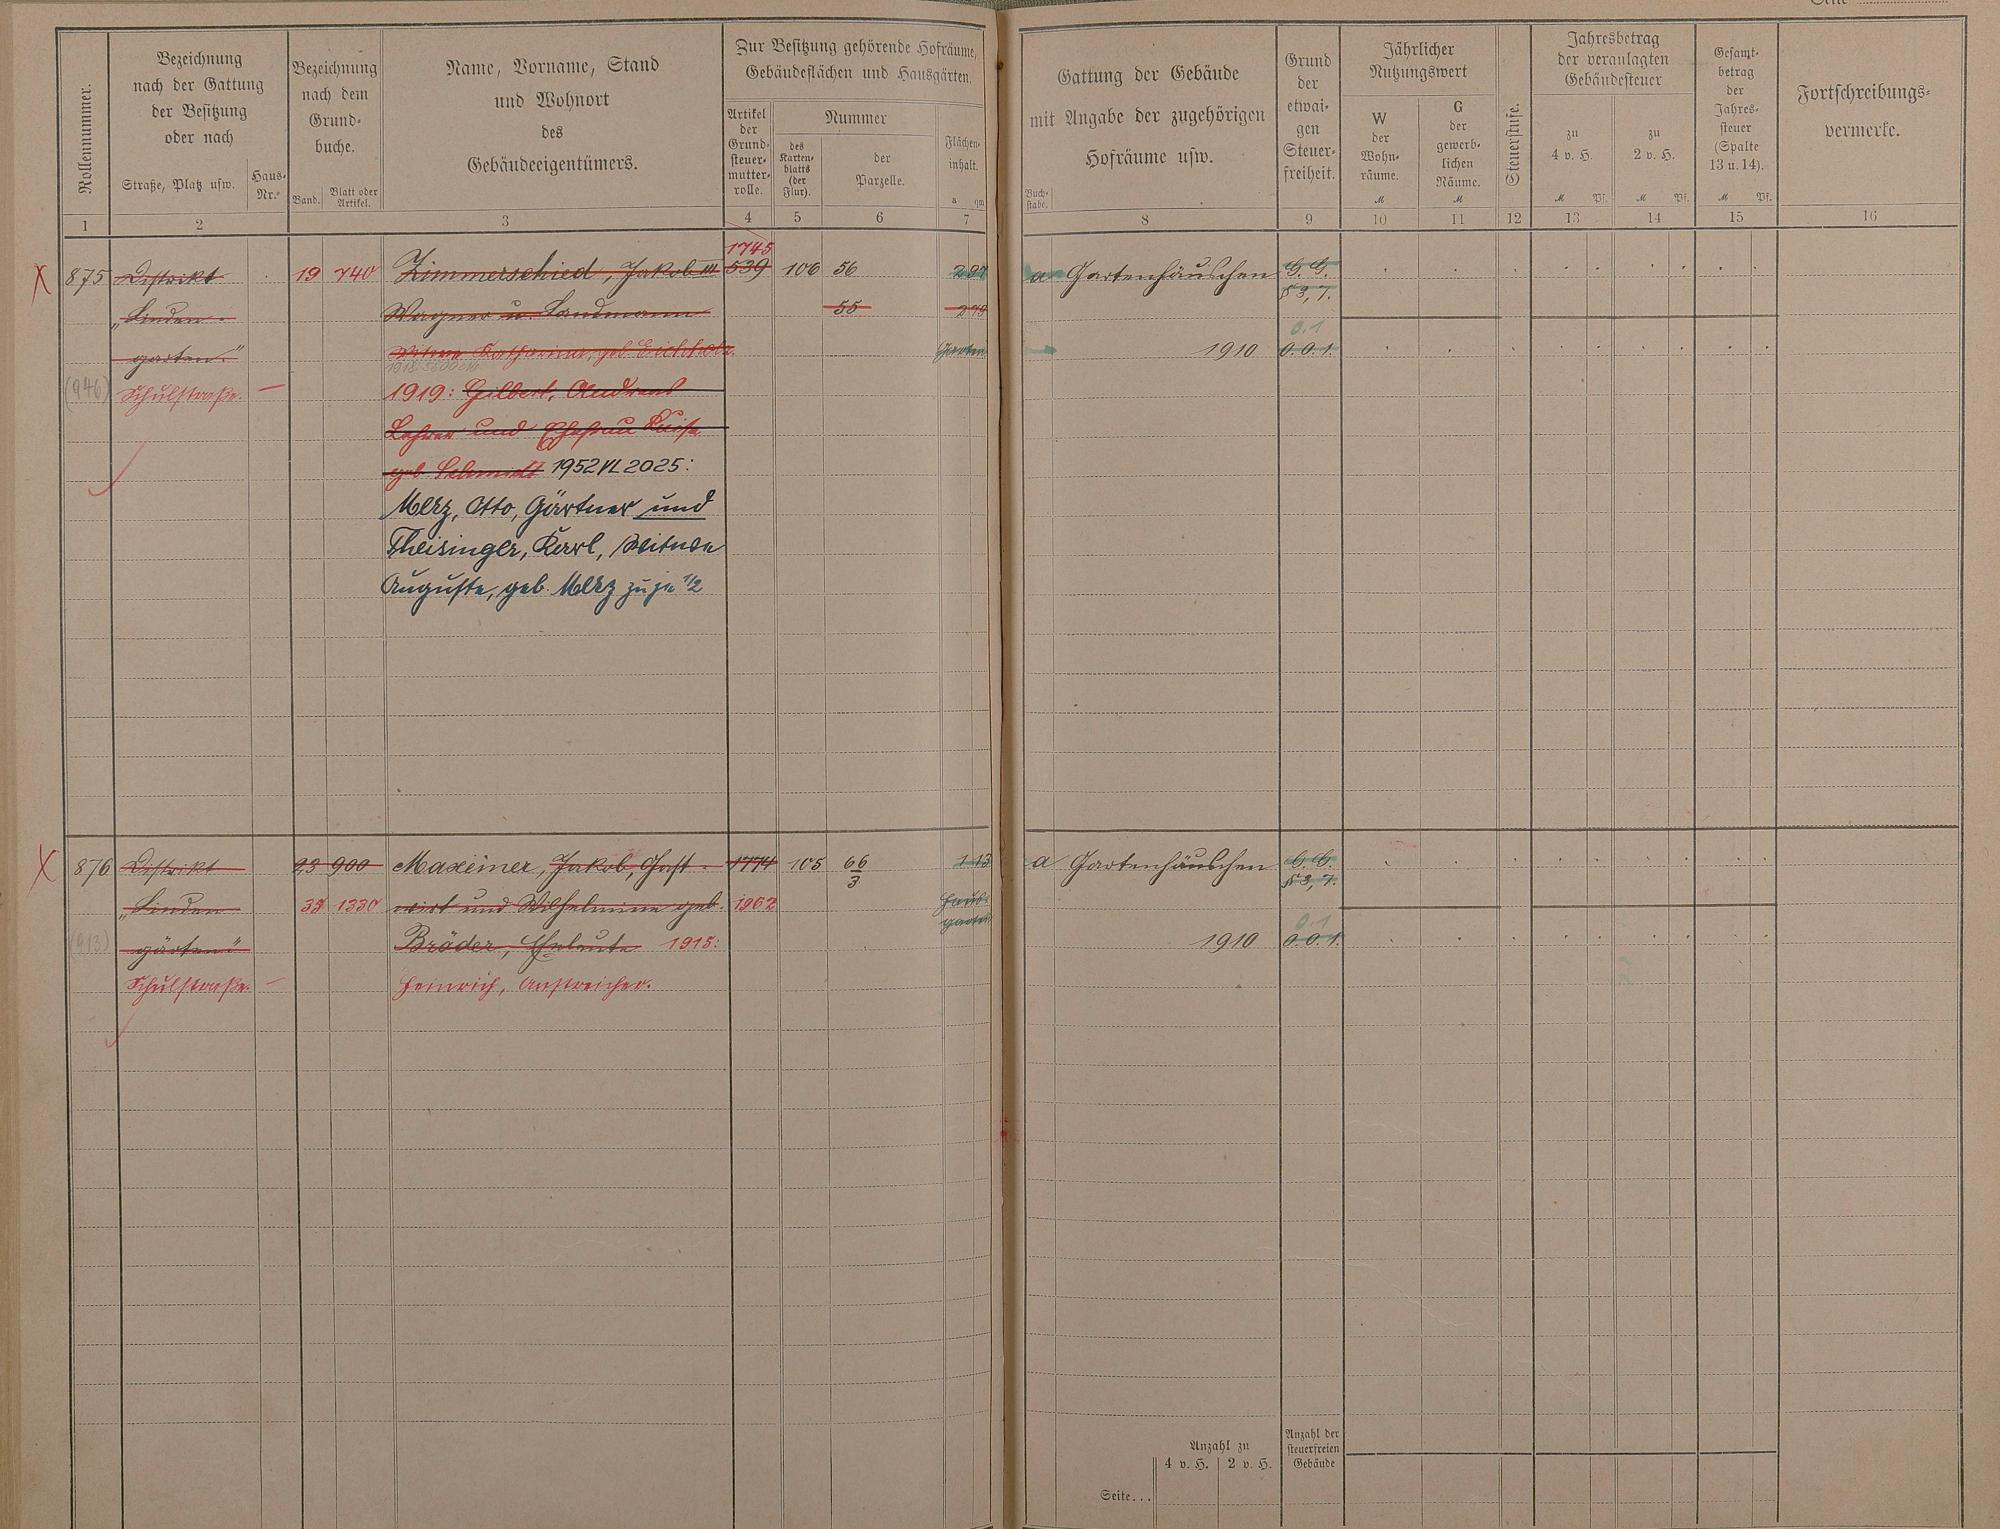 Seite
Rollennummer.
Bezeichnung
nach der Gattung
der Besitzung
oder nach
Straße, Platz usw.
Haus-
Nr.
Bezeichnung
nach dem
Grund-
buche.
Band.
Blatt oder
Artikel.
Name, Vorname, Stand
und Wohnort
des
Gebäudeeigentümers.
Zur Besitzung gehörende Hofräume,
Gebäudeflächen und Hausgärten.
Artikel
der
Grund-
steuer-
mutter-
rolle.
Nummer
des
Karten-
blatts
(der
Flur).
der
Parzelle.
Flächen-
inhalt.
a qm
Gattung der Gebäude
mit Angabe der zugehörigen
Hofräume usw.
Buch-
stabe.
Grund
der
etwai-
gen
Steuer-
freiheit.
Jährlicher
Nutzungswert
W
der
Wohn-
räume.
M
G
der
gewerb-
lichen
Räume.
M
Steuerstufe.
Jahresbetrag
der veranlagten
Gebäudesteuer
zu
4 v. H.
M Pf.
zu
2 v. H.
M Pf.
Gesamt-
betrag
der
Jahres-
steuer
(Spalte
13 u. 14).
M Pf.
Fortschreibungs-
vermerke.
1 2 3 4 5 6 7 8 9 10 11 12 13 14 15 16
1745
875 Distrikt 19 740 Zimmerschied, Jakob III 539 106 56 2 97 a Gartenhäuschen G. G.
§ 3, 7.
„Linden- Wagner u. Landmann 55
0.1
garten." Witwe Katharina, geb. Garten 1910 0.0.1.
(946) Schulstraße. – 1919: Gilbert, Andreas
Lehrer und Ehefrau Luise
geb. Schmidt 1952 VL 2025:
Merz, Otto, Gärtner und
Theisinger, Karl, Witwe
Auguste, geb. Merz zu je 1/2
876 Distrikt 23 900 Maxeiner, Jakob, Gast- 1774 105 66/3 1 13 a Gartenhäuschen G. G.
§ 3, 7.
„Linden 38 1330 wirt und Wilhelmine geb. 1962 Haus-
garten
0.1
(913) gärten" Bräder, Eheleute 1915: 1910 0.0.1.
Schulstraße. – Heinrich, Anstreicher.
Anzahl zu
4 v. H. 2 v. H.
Anzahl der
steuerfreien
Gebäude
Seite...